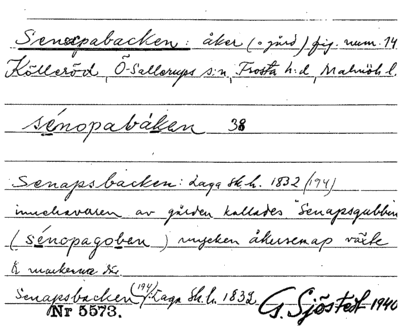 Senapabacken: åker (o gård) fig. num. 14
Källeröd, Ö. Sallerups s:n, Frosta h:d, Malmöh l.
sénopabåken 38
Senapsbacken: Laga sk.h. 1832 (194)
innehavaren av gården kallades "Senapsgubben
(sénopagoben) mycken åkersenap växte
å markerna
Senapsbacken (194): Laga Sk.h. 1832 G. Sjöstedt 1940
Nr 5573.